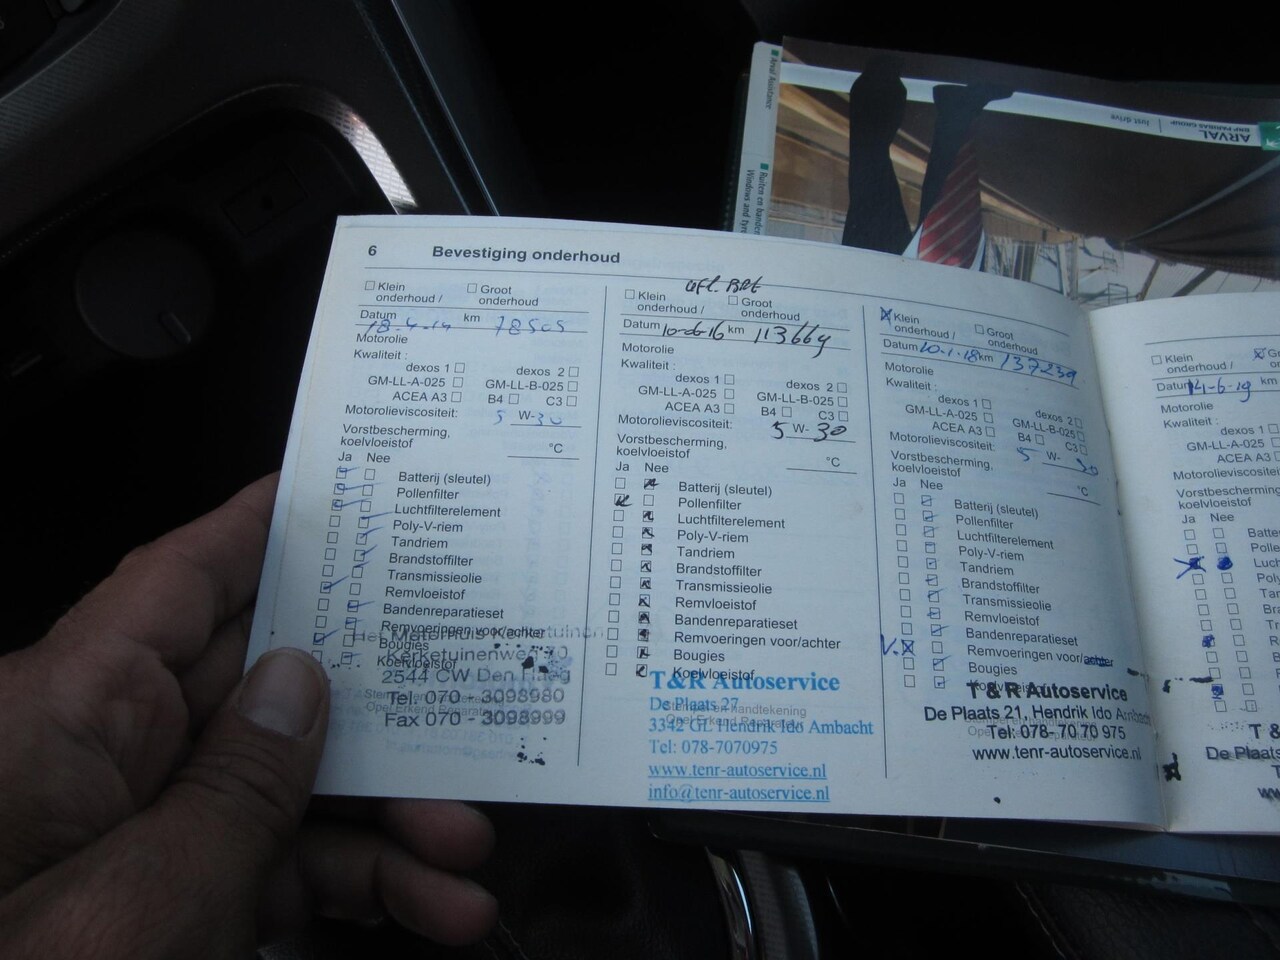 6 Bevestiging onderhoud
Klein onderhoud / Groot onderhoud
Datum 18-4-14 km 78505
Motorolie
Kwaliteit :
dexos 1 dexos 2
GM-LL-A-025 GM-LL-B-025
ACEA A3 B4 C3
Motorolieviscositeit: 5 W- 30
Vorstbescherming,
koelvloeistof °C
Ja Nee
Batterij (sleutel)
Pollenfilter
Luchtfilterelement
Poly-V-riem
Tandriem
Brandstoffilter
Transmissieolie
Remvloeistof
Bandenreparatieset
Remvoeringen voor/achter
Bougies
Koelvloeistof
Het Motorhuis Kerketuinen
Kerketuinenweg
2544 CW Den Haag
Stempel en handtekening
Tel. 070 - 3098980
Opel Erkend Reparateur
Fax 070 - 3098999
Klein onderhoud / Groot onderhoud
Datum 10-6-16 km 113664
Motorolie
Kwaliteit :
dexos 1 dexos 2
GM-LL-A-025 GM-LL-B-025
ACEA A3 B4 C3
Motorolieviscositeit: 5 W- 30
Vorstbescherming,
koelvloeistof °C
Ja Nee
Batterij (sleutel)
Pollenfilter
Luchtfilterelement
Poly-V-riem
Tandriem
Brandstoffilter
Transmissieolie
Remvloeistof
Bandenreparatieset
Remvoeringen voor/achter
Bougies
Koelvloeistof
T&R Autoservice
De Plaats 27
Stempel en handtekening
Opel Erkend Reparateur
3342 GL Hendrik Ido Ambacht
Tel: 078-7070975
www.tenr-autoservice.nl
info@tenr-autoservice.nl
Klein onderhoud / Groot onderhoud
Datum 10-1-18 km 137239
Motorolie
Kwaliteit :
dexos 1 dexos 2
GM-LL-A-025 GM-LL-B-025
ACEA A3 B4 C3
Motorolieviscositeit: 5 W- 30
Vorstbescherming,
koelvloeistof °C
Ja Nee
Batterij (sleutel)
Pollenfilter
Luchtfilterelement
Poly-V-riem
Tandriem
Brandstoffilter
Transmissieolie
Remvloeistof
Bandenreparatieset
V. Remvoeringen voor/achter
Bougies
Koelvloeistof
T & R Autoservice
De Plaats 21, Hendrik Ido Ambacht
Tel: 078- 70 70 975
www.tenr-autoservice.nl
Klein onderhoud / Groot
Datum 14-6-19 km
Motorolie
Kwaliteit :
dexos 1
GM-LL-A-025
ACEA A3
Motorolieviscositeit
Vorstbescherming
koelvloeistof
Ja Nee
Batte
Polle
Luch
Poly
Tan
Bra
Tra
Re
Ba
T &
De Plaats
ARVAL
BNP PARIBAS GROUP
just drive
Arval Assistance
Ruiten en banden
Windows and tyre